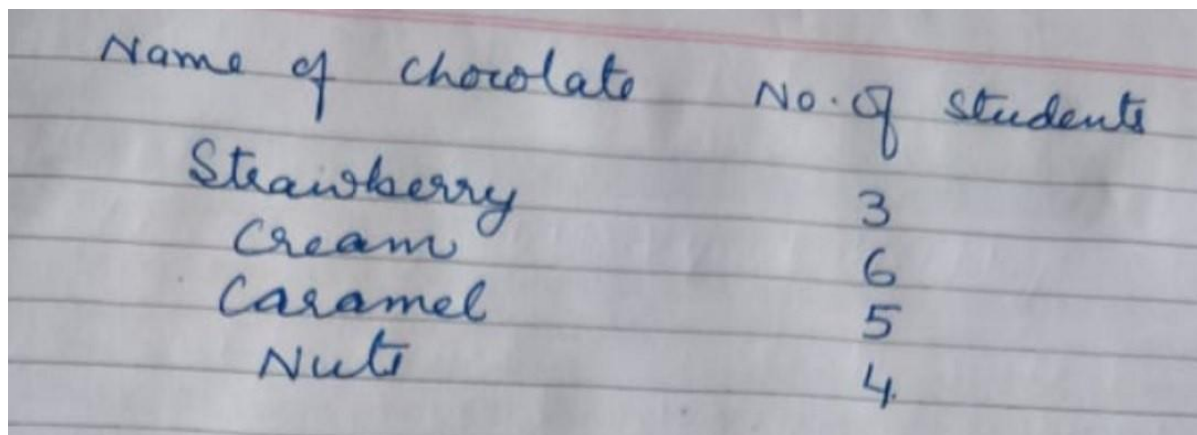 Name of chocolate No. of students
Strawberry 3
Cream 6
Caramel 5
Nuts 4.